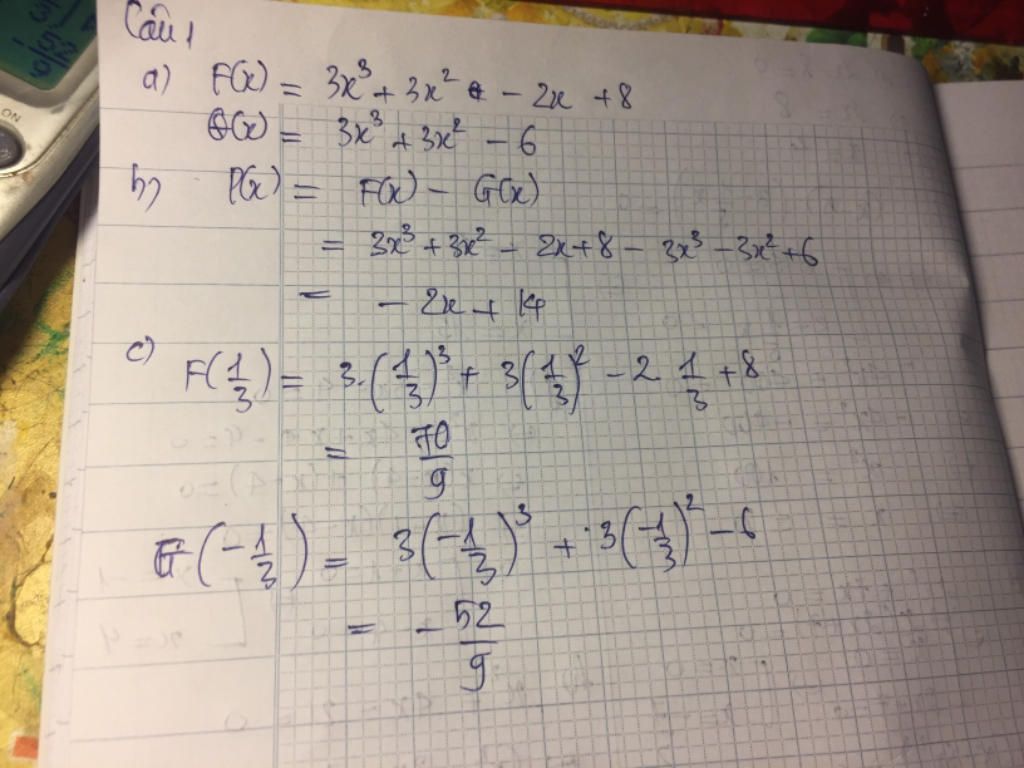 Câu 1
a) F(x) = 3x³ + 3x² - 2x + 8
G(x) = 3x³ + 3x² - 6
b) P(x) = F(x) - G(x)
= 3x³ + 3x² - 2x + 8 - 3x³ - 3x² + 6
= - 2x + 14
c) F(1/3) = 3.(1/3)³ + 3(1/3)² - 2 1/3 + 8
= 70/9
G(-1/3) = 3(-1/3)³ + 3(-1/3)² - 6
= - 52/9
ON